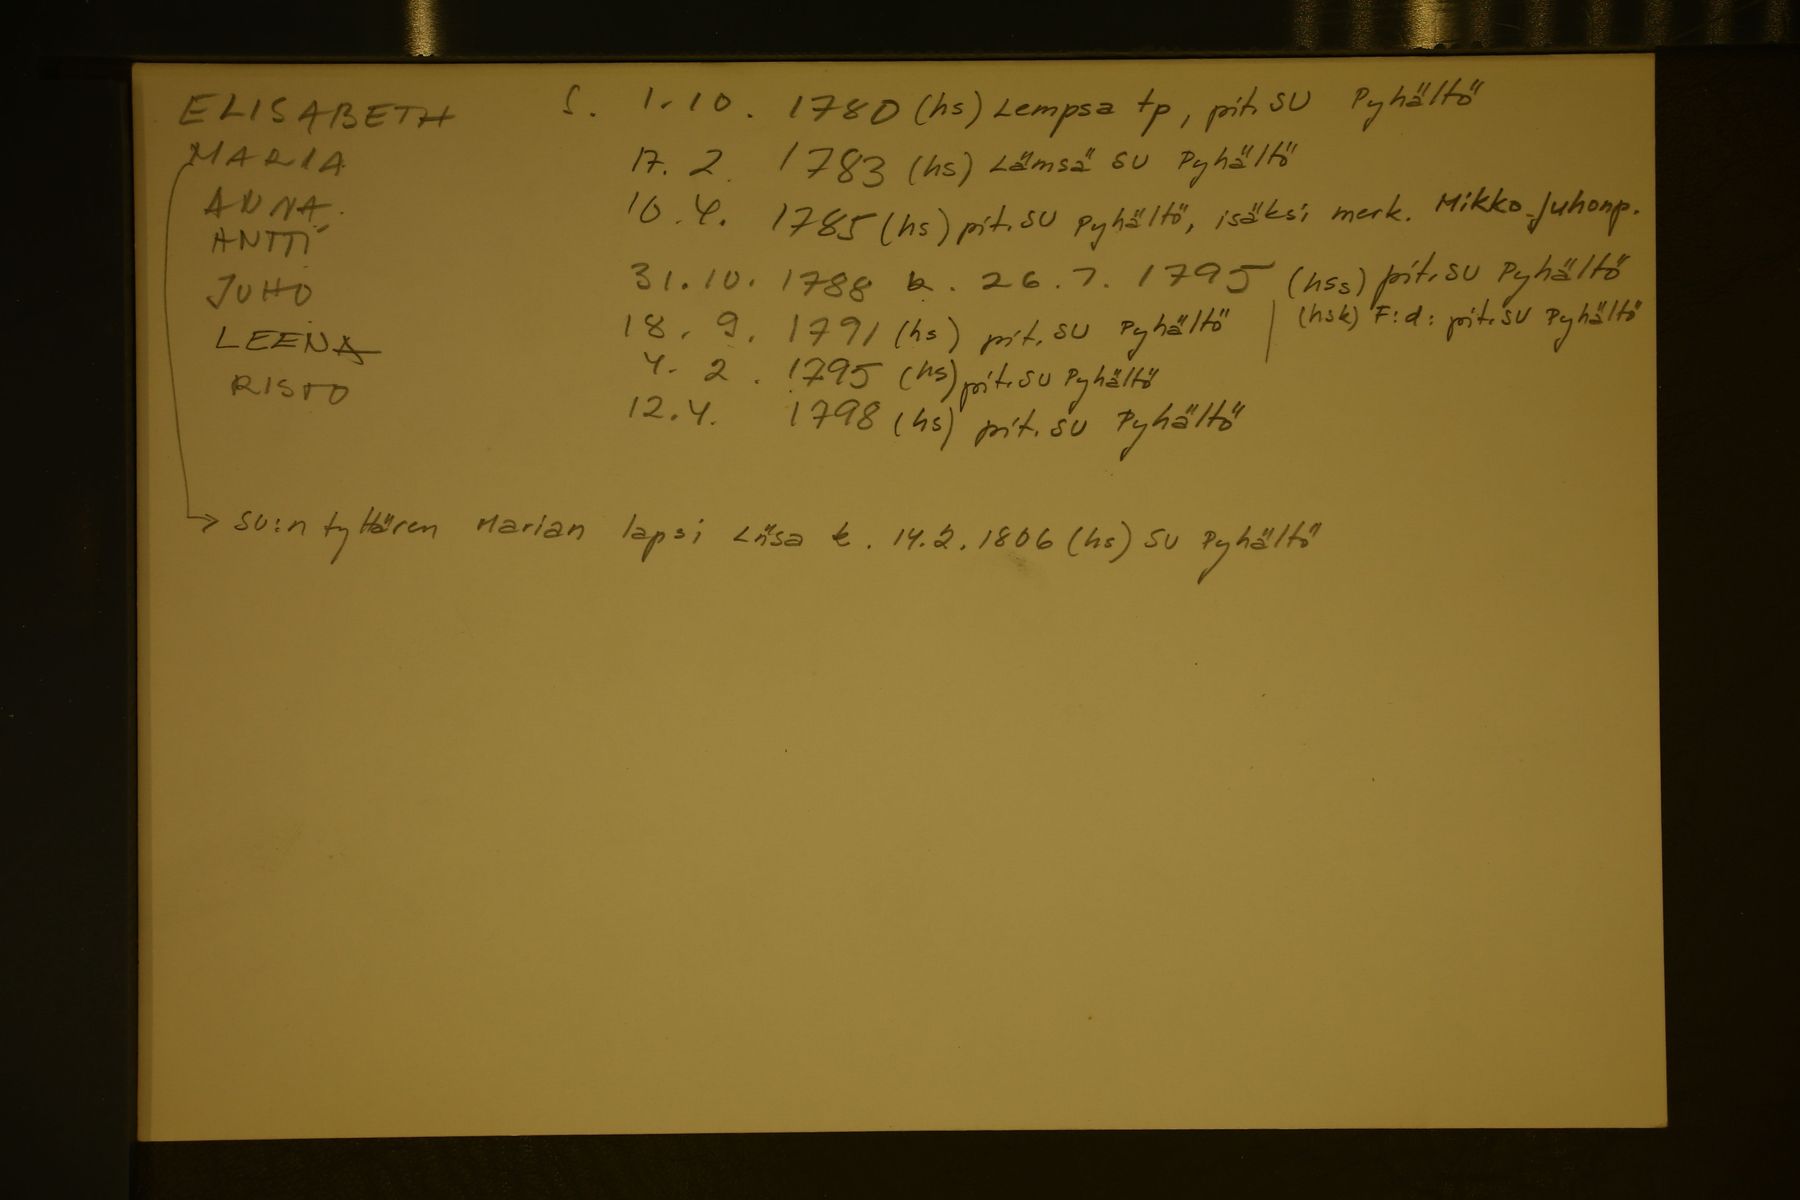 ELISABETH s. 1.10. 1780 (hs) Lempsa tp, pit. SU Pyhältö
MARIA 17. 2. 1783 (hs) Lämsä SU Pyhältö
ANNA 10.4. 1785 (hs) pit. SU Pyhältö, isäksi merk. Mikko Juhonp.
ANTTI 31.10. 1788 k. 26.7. 1795 (hss) pit. SU Pyhältö
(hsk) F:d: pit. SU Pyhältö
JUHO 18. 9. 1791 (hs) pit. SU Pyhältö
LEENA 4. 2. 1795 (hs) pit. SU Pyhältö
RISTO 12.4. 1798 (hs) pit. SU Pyhältö
→ SU:n tyttären Marian lapsi Liisa k. 14.2.1806 (hs) SU Pyhältö